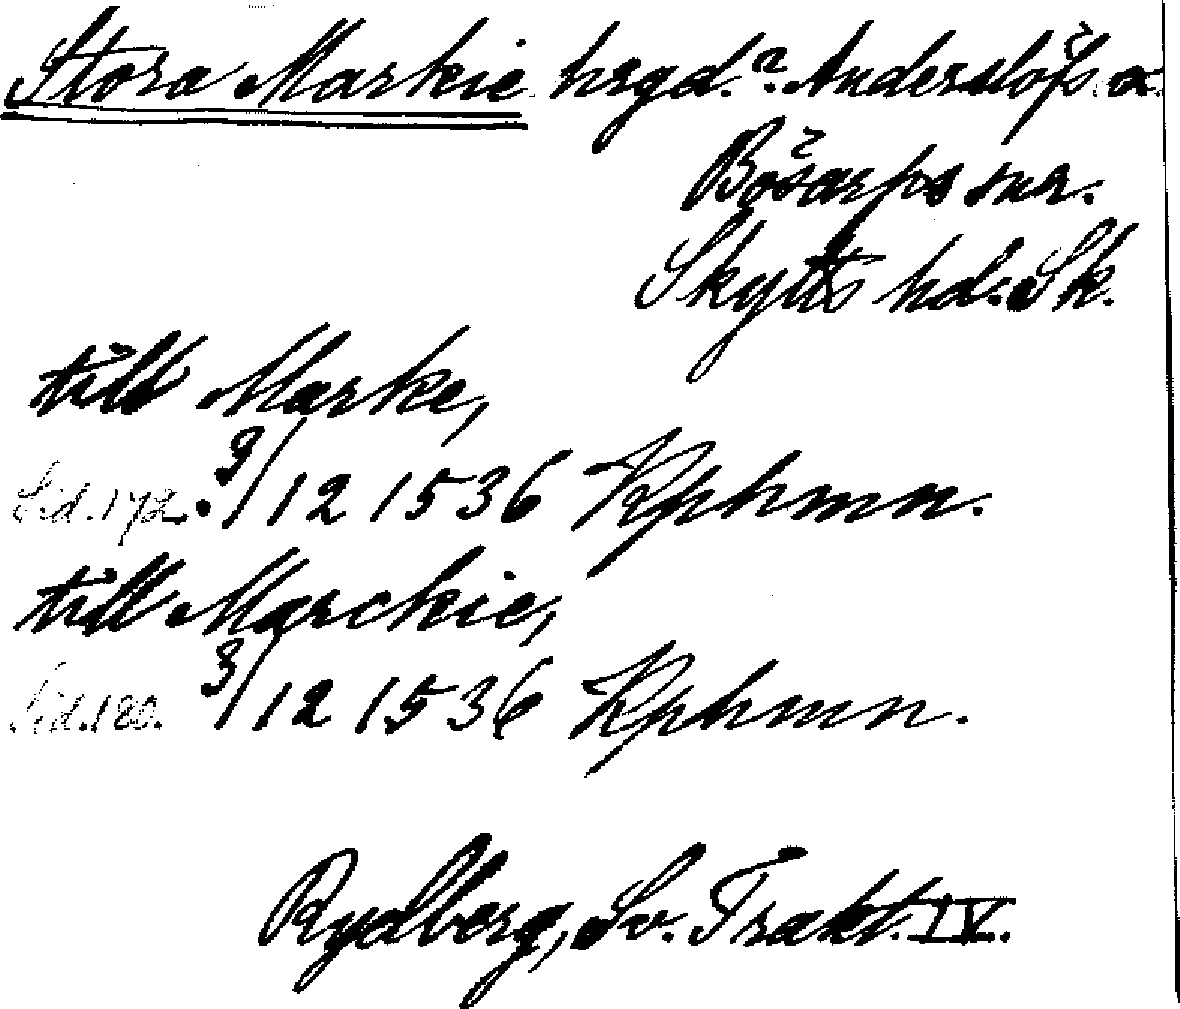 Stora Markie hrgd.? Anderslöfs o.
Bösarps snr.
Skytts hd. Sk.
till Marke,
Sid. 172. 3/12 1536 Kphmn.
till Marckie,
Sid. 120. 3/12 1536 Kphmn.
Rydberg, Sv. Trakt. IV.